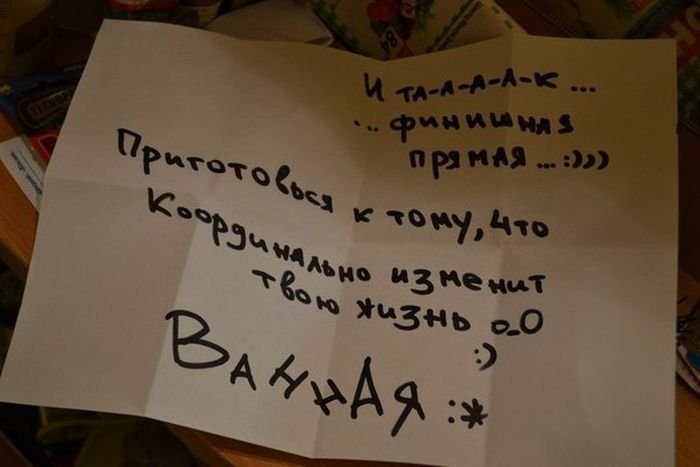 И ТА-А-А-А-К ...
... ФИНИШНАЯ
ПРЯМАЯ ... :)))
Приготовься к тому, что
Координально изменит
твою жизнь о_О
:)
ВАННАЯ :*